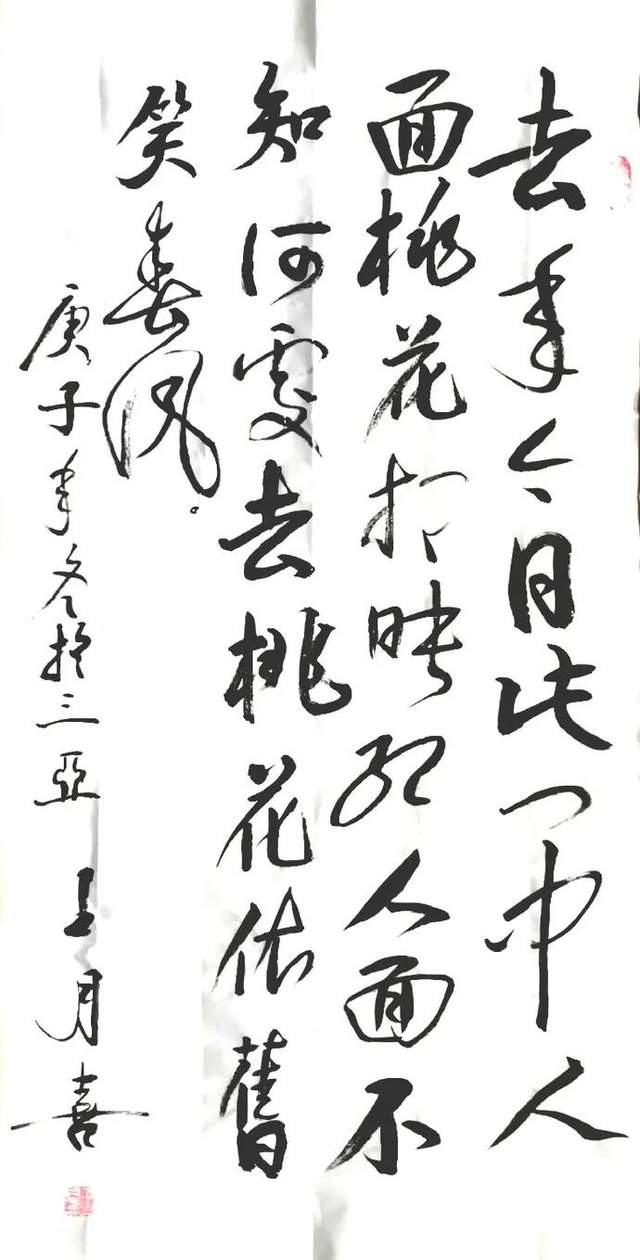 去年今日此門中人
面桃花相映紅人面不
知何處去桃花依舊
笑春風。
庚子年冬於三亞 王月喜